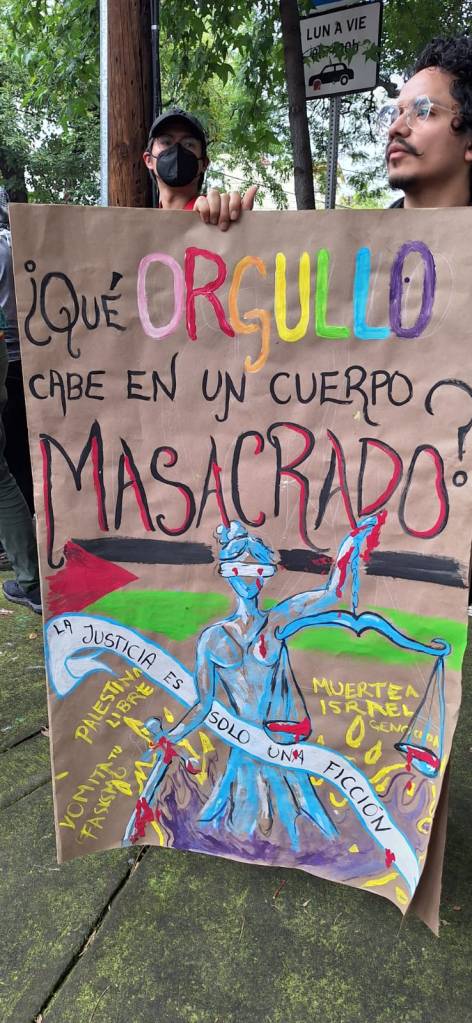 LUN A VIE
¿QUÉ ORGULLO
CABE EN UN CUERPO
MASACRADO?
LA JUSTICIA ES
SOLO UNA FICCIÓN
PALESTINA
LIBRE
VOMITA TU
FASCISMO
MUERTE A
ISRAEL
GENOCIDA